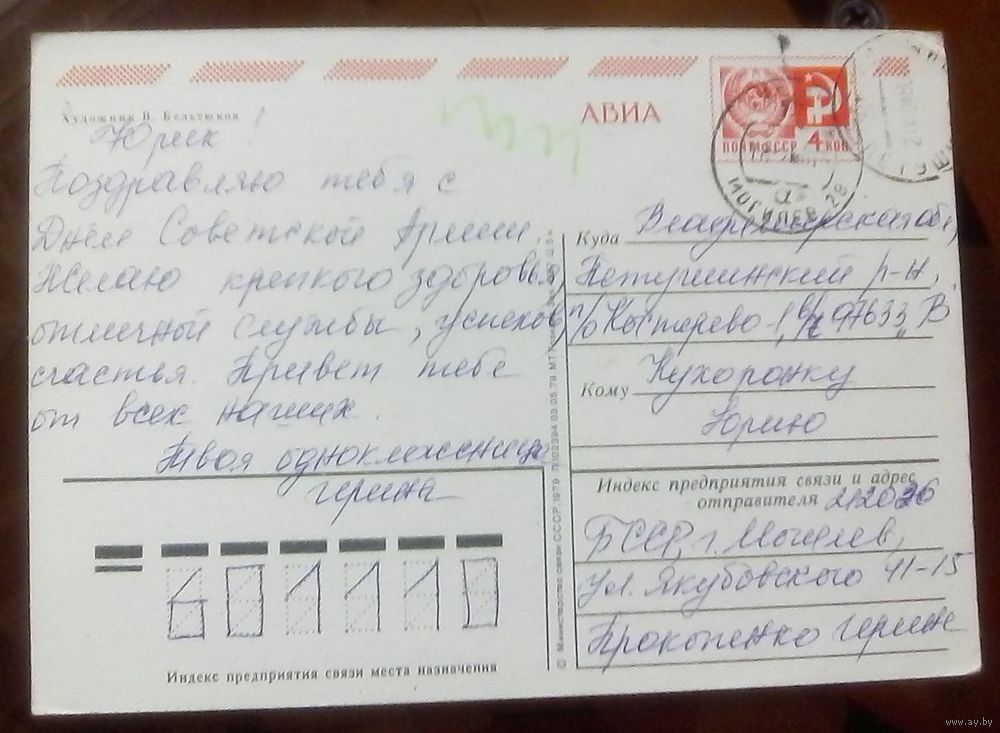 Художник В. Бельтюков
АВИА
ПОЧТА СССР 4 КОП
МОГИЛЕВ 29
Юрик!
Поздравляю тебя с
Днём Советской Армии,
Желаю крепкого здоровья,
отличной службы, успехов,
счастья. Привет тебе
от всех наших.
Твоя одноклассница
герина
Куда Владимирская обл,
Петушинский р-н,
п/о Костерево-1, в/ч 97633 "В"
Кому Кухоронку
Юрию
Индекс предприятия связи и адрес
отправителя 212026
БССР, г. Могилев,
ул. Якубовского 41-15
Прокопенко герине
601110
Индекс предприятия связи места назначения
© Министерство связи СССР, 1979 03.05.79
www.ay.by